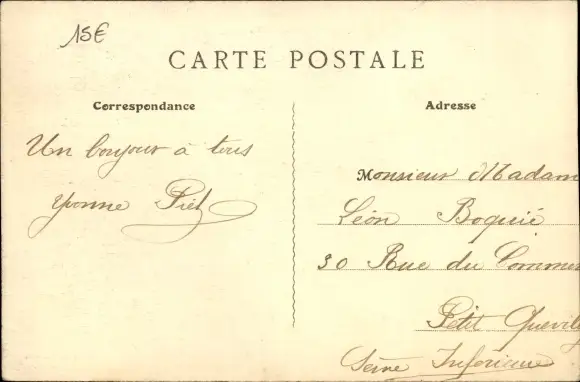 15€
CARTE POSTALE
Correspondance
Adresse
Un bonjour à tous
Yvonne Piel
Monsieur Madam
Léon Boquié
30 Rue du Commer
Petit Quevilly
Seine Inférieure